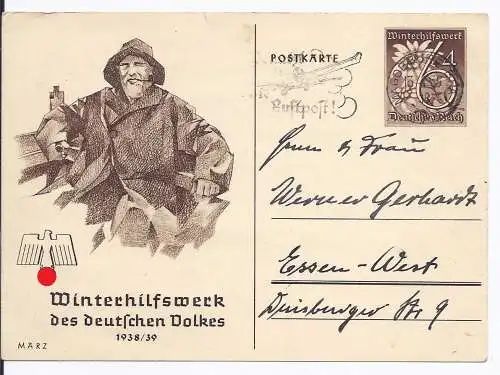 Winterhilfswerk
des deutschen Volkes
1938/39
MÄRZ
POSTKARTE
Luftpost!
Winterhilfswerk
4
6
Deutsches Reich
Herrn & Frau
Werner Gerhardt
Essen-West
Duisburger Str 9